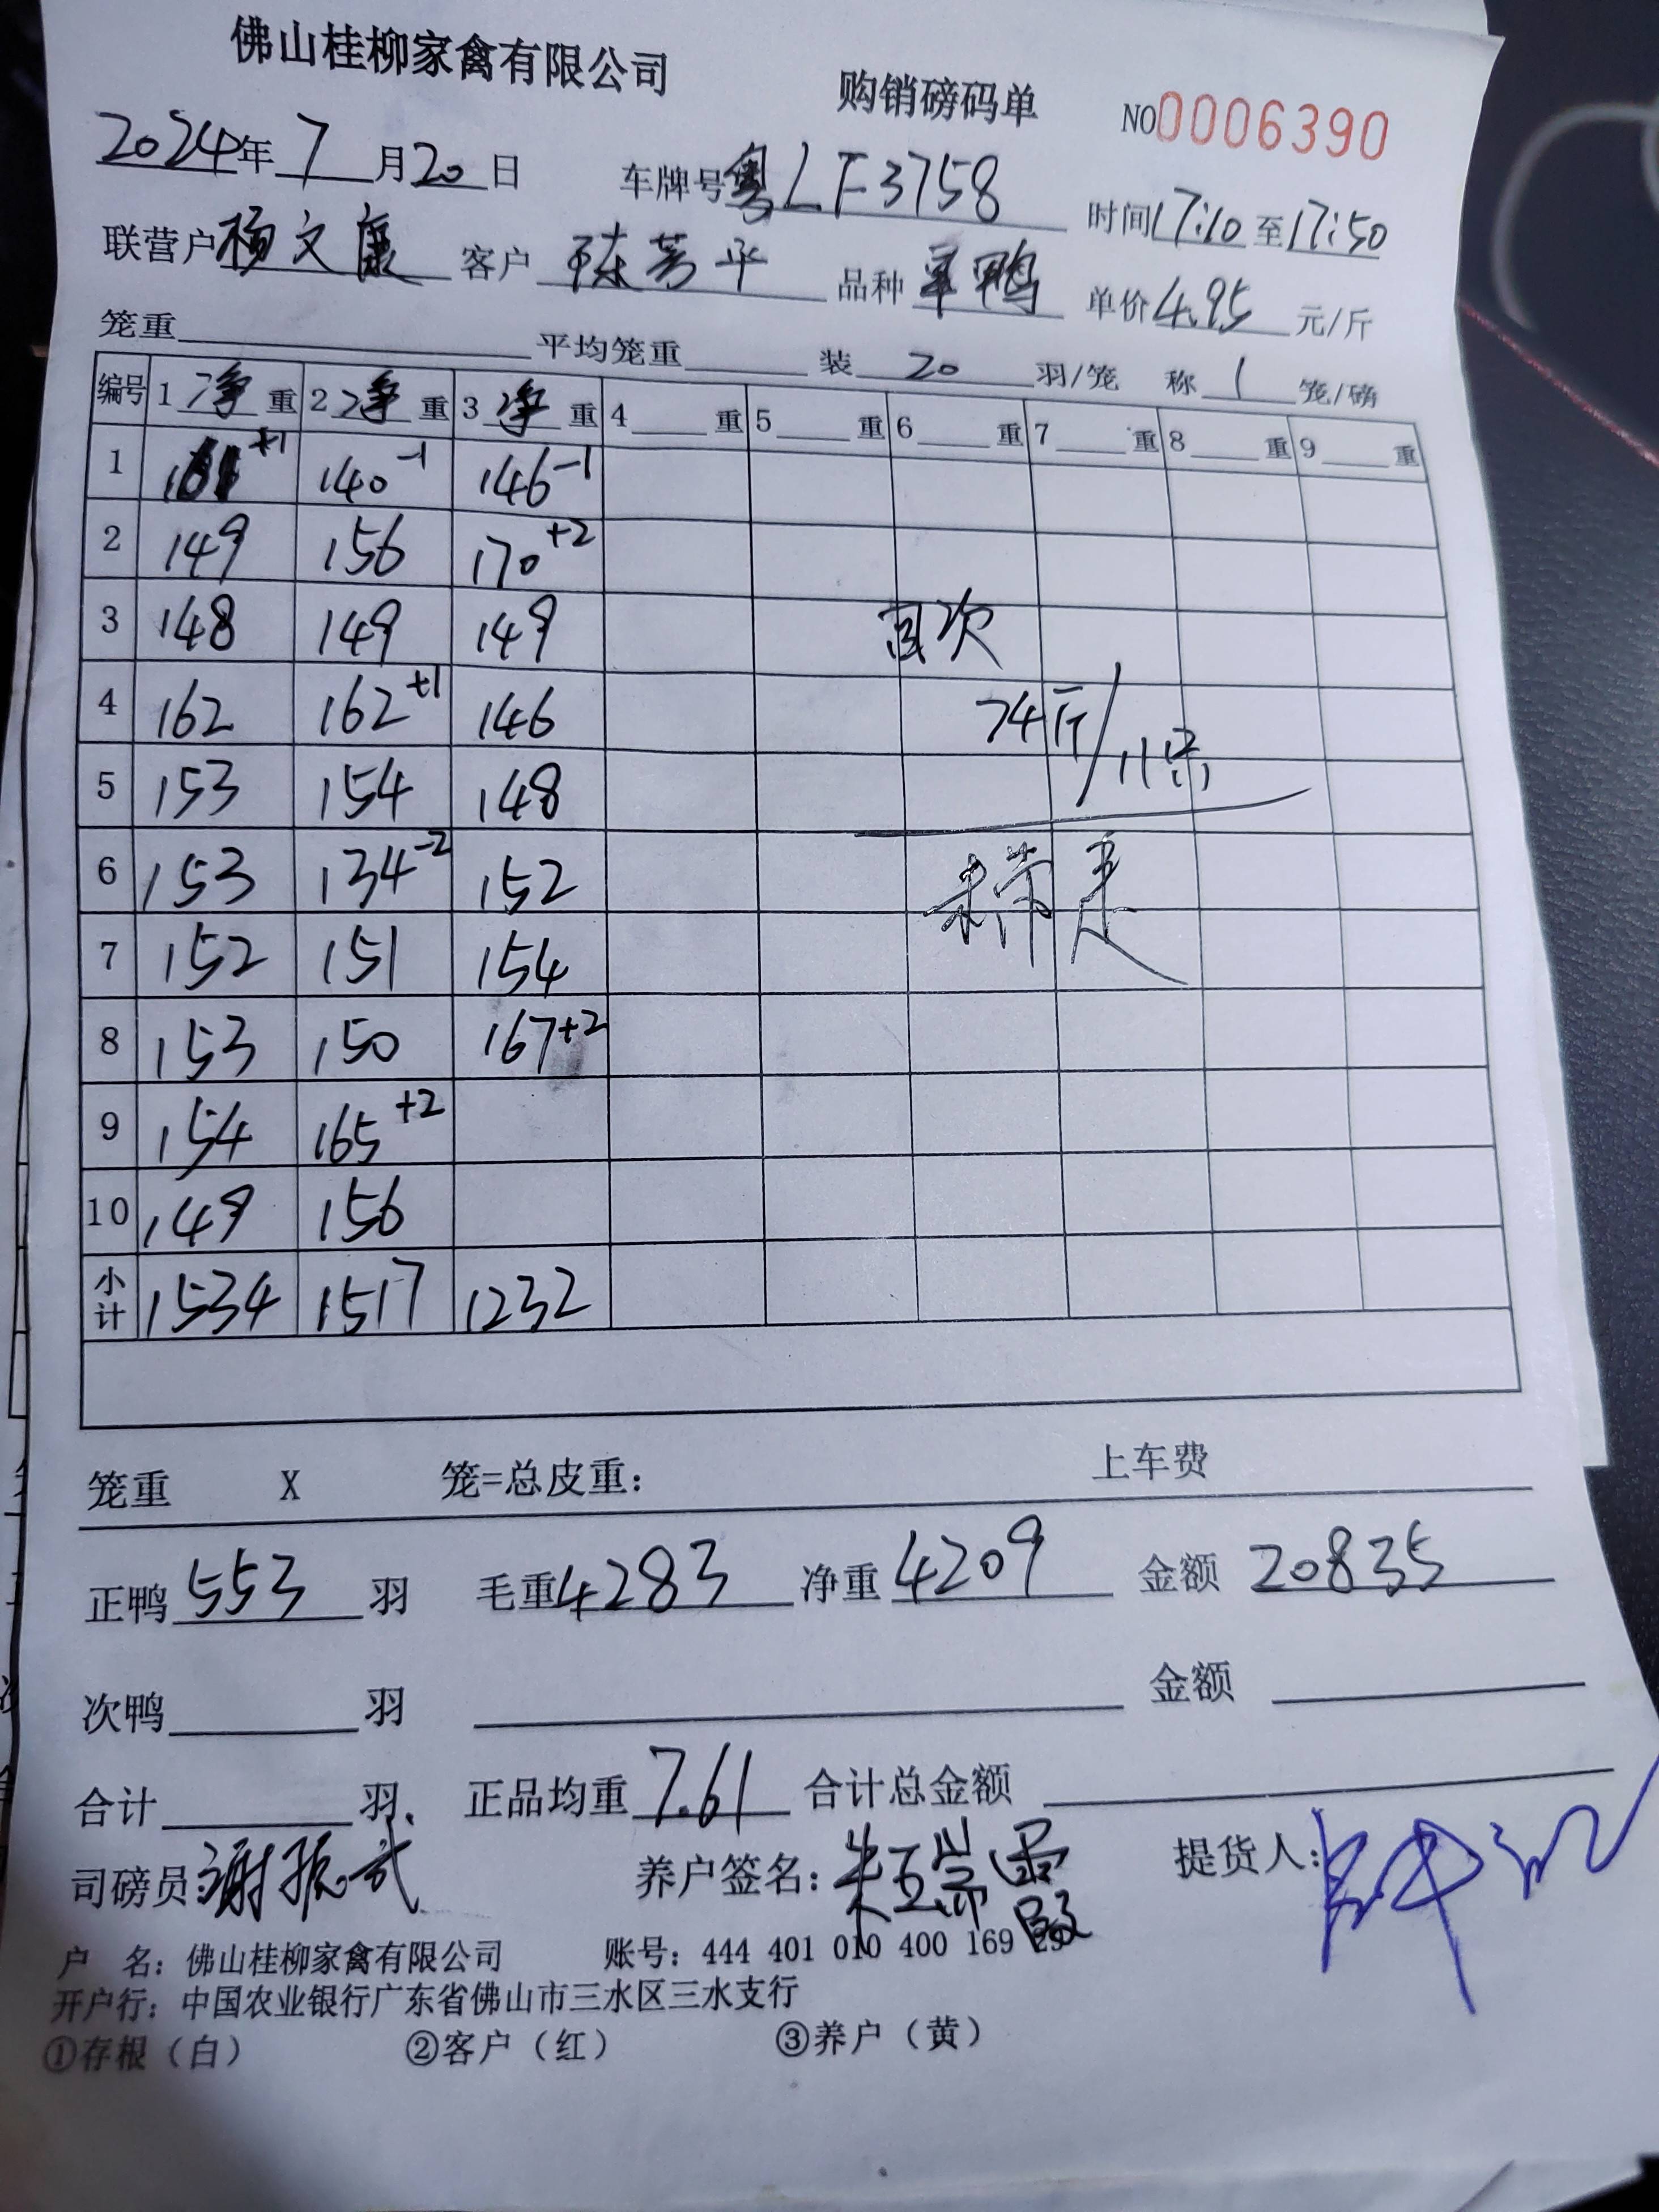 佛山桂柳家禽有限公司 购销磅码单 NO0006390
2024年7月20日 车牌号粤LF3758 时间17:10至17:50
联营户杨文康 客户陈芳平 品种草鸭 单价4.95元/斤
笼重 平均笼重 装20羽/笼 称1笼/磅
编号 1净重 2净重 3净重 4重 5重 6重 7重 8重 9重
1 161+1 140-1 146-1
2 149 156 170+2
3 148 149 149 自次
4 162 162+1 146 74斤/11只
5 153 154 148
6 153 134-2 152 未带走
7 152 151 154
8 153 150 167+2
9 154 165+2
10 149 156
小计 1534 1517 1232
笼重 X 笼=总皮重： 上车费
正鸭553羽 毛重4283 净重4209 金额20835
次鸭 羽 金额
合计 羽、 正品均重7.61 合计总金额
司磅员：谢振武 养户签名： 提货人：
户 名：佛山桂柳家禽有限公司 账号：444 401 010 400 169
开户行：中国农业银行广东省佛山市三水区三水支行
①存根（白） ②客户（红） ③养户（黄）